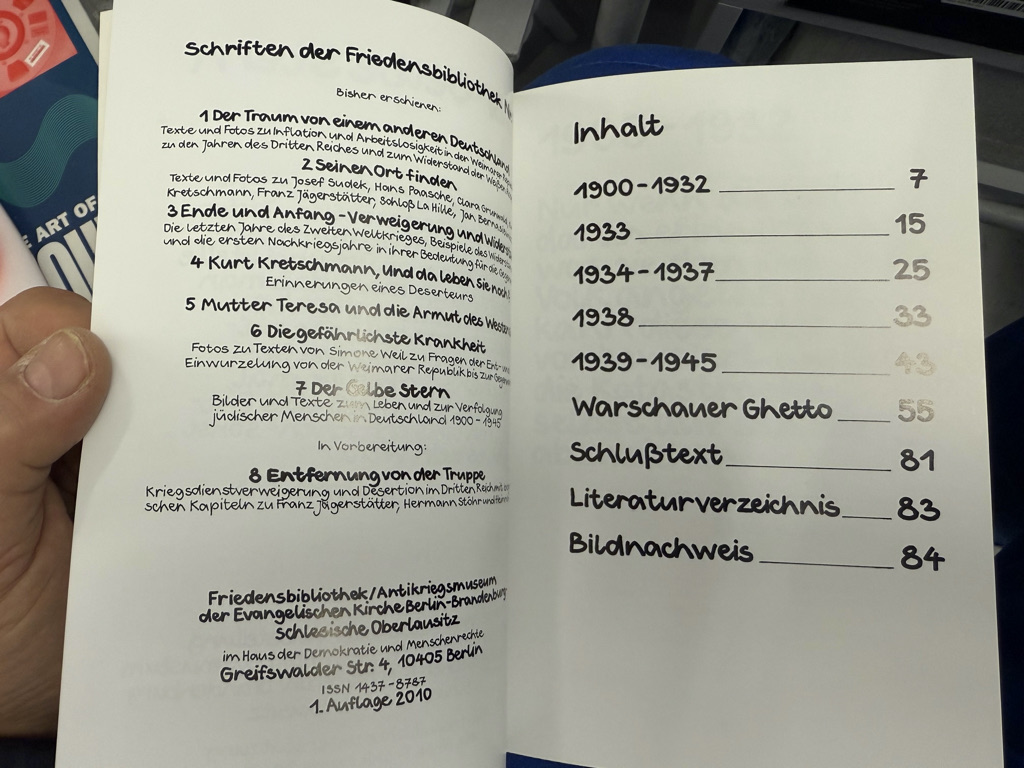 E ART OF
Schriften der Friedensbibliothek
Bisher erschienen:
1 Der Traum von einem anderen Deutschland
Texte und Fotos zu Inflation und Arbeitslosigkeit in der Weimarer
zu den Jahren des Dritten Reiches und zum Widerstand der Weißen
2 Seinen Ort finden
Texte und Fotos zu Josef Sudek, Hans Paasche, Clara Grunwald,
Kretschmann, Franz Jägerstätter, Schloß La Hille, Jan
3 Ende und Anfang - Verweigerung und
Die letzten Jahre des Zweiten Weltkrieges, Beispiele des
und die ersten Nachkriegsjahre in ihrer Bedeutung für die
4 Kurt Kretschmann, Und da leben sie noch
Erinnerungen eines Deserteurs
5 Mutter Teresa und die Armut des
6 Die gefährlichste Krankheit
Fotos zu Texten von Simone Weil zu Fragen der Ent- und
Einwurzelung von der Weimarer Republik bis zur
7 Der Gelbe Stern
Bilder und Texte zum Leben und zur Verfolgung
jüdischer Menschen in Deutschland 1900-1945
In Vorbereitung:
8 Entfernung von der Truppe
Kriegsdienstverweigerung und Desertion im Dritten Reich mit
schen Kapiteln zu Franz Jägerstätter, Hermann Stöhr und
Friedensbibliothek/Antikriegsmuseum
der Evangelischen Kirche Berlin-Brandenburg-
schlesische Oberlausitz
im Haus der Demokratie und Menschenrechte
Greifswalder Str. 4, 10405 Berlin
ISSN 1437-8787
1. Auflage 2010
Inhalt
1900-1932 7
1933 15
1934-1937 25
1938 33
1939-1945 43
Warschauer Ghetto 55
Schlußtext 81
Literaturverzeichnis 83
Bildnachweis 84